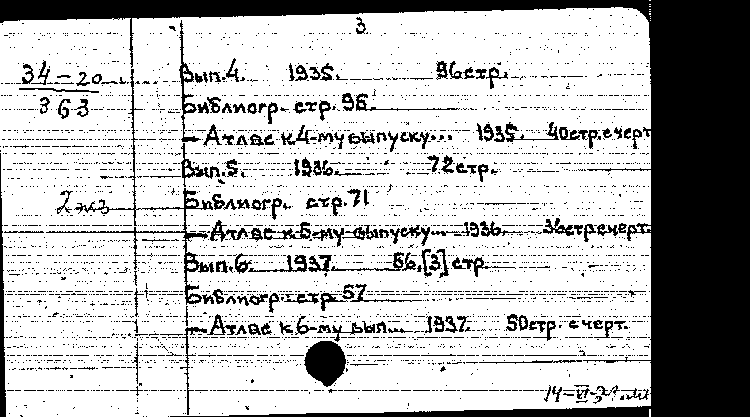 3.
34-20
363
Вып.4. 1935. 96стр.
Библиогр. стр. 96.
— Атлас к 4-му выпуску... 1935. 40стр.счерт
Вып.5. 1936. 72стр.
2 экз
Библиогр. стр. 71
— Атлас к 5-му выпуску... 1936. 36стр.счерт.
Вып.6. 1937. 56,[3] стр.
Библиогр. стр. 57
— Атлас к 6-му вып... 1937. 50стр. счерт.
14-VI-